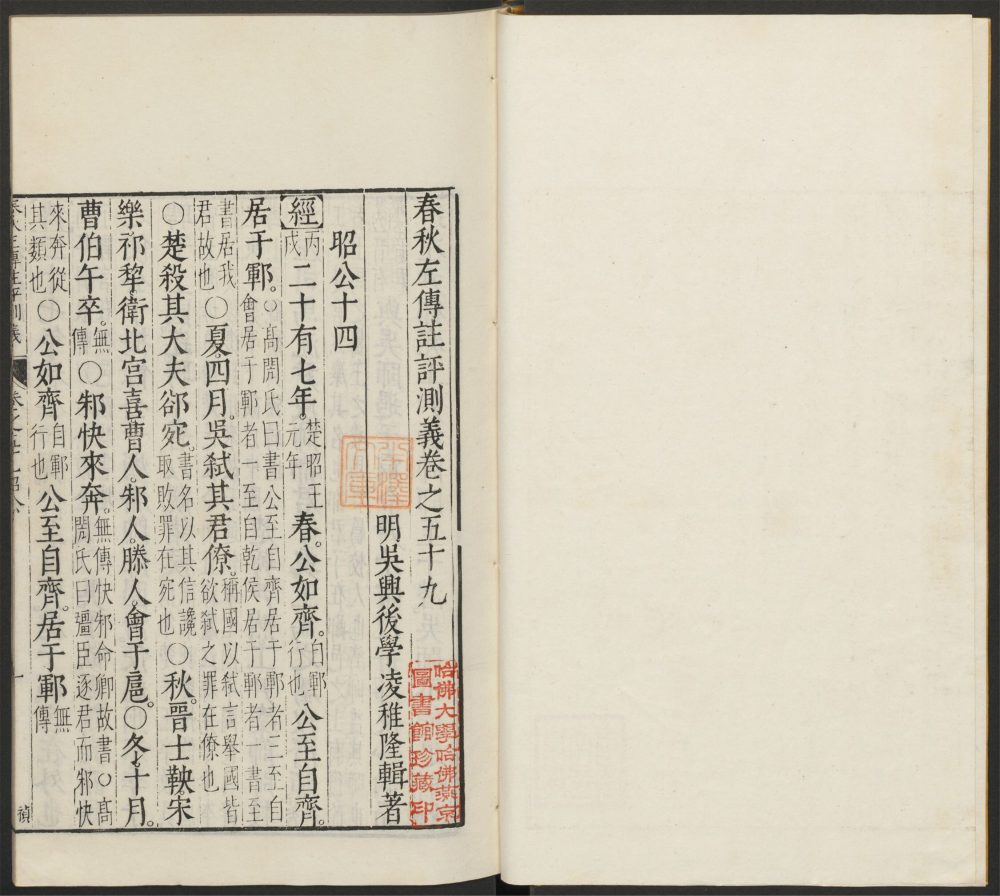 春秋左傳註評測義卷之五十九
明吳興後學凌稚隆輯著
昭公十四
經丙戌二十有七年楚昭王元年春。公如齊。自鄆行也公至自齊。
居于鄆。○高閌氏曰書公至自齊居于鄆者三至自會居于鄆者一至自乾侯居于鄆者一書至
書居我君故也○夏。四月。吳弑其君僚。稱國以弑言舉國皆欲弑之罪在僚也
○楚殺其大夫郤宛。書名以其信讒取敗罪在宛也○秋。晉士鞅。宋
樂祁犂。衛北宮喜曹人。邾人。滕人。會于扈。○冬。十月。
曹伯午卒。無傳○邾快來奔。無傳快邾命卿故書○高閌氏曰彊臣逐君而邾快
來奔從其類也○公如齊自鄆行也公至自齊。居于鄆無傳
一
禎
哈佛大學哈佛燕京
圖書館珍藏印